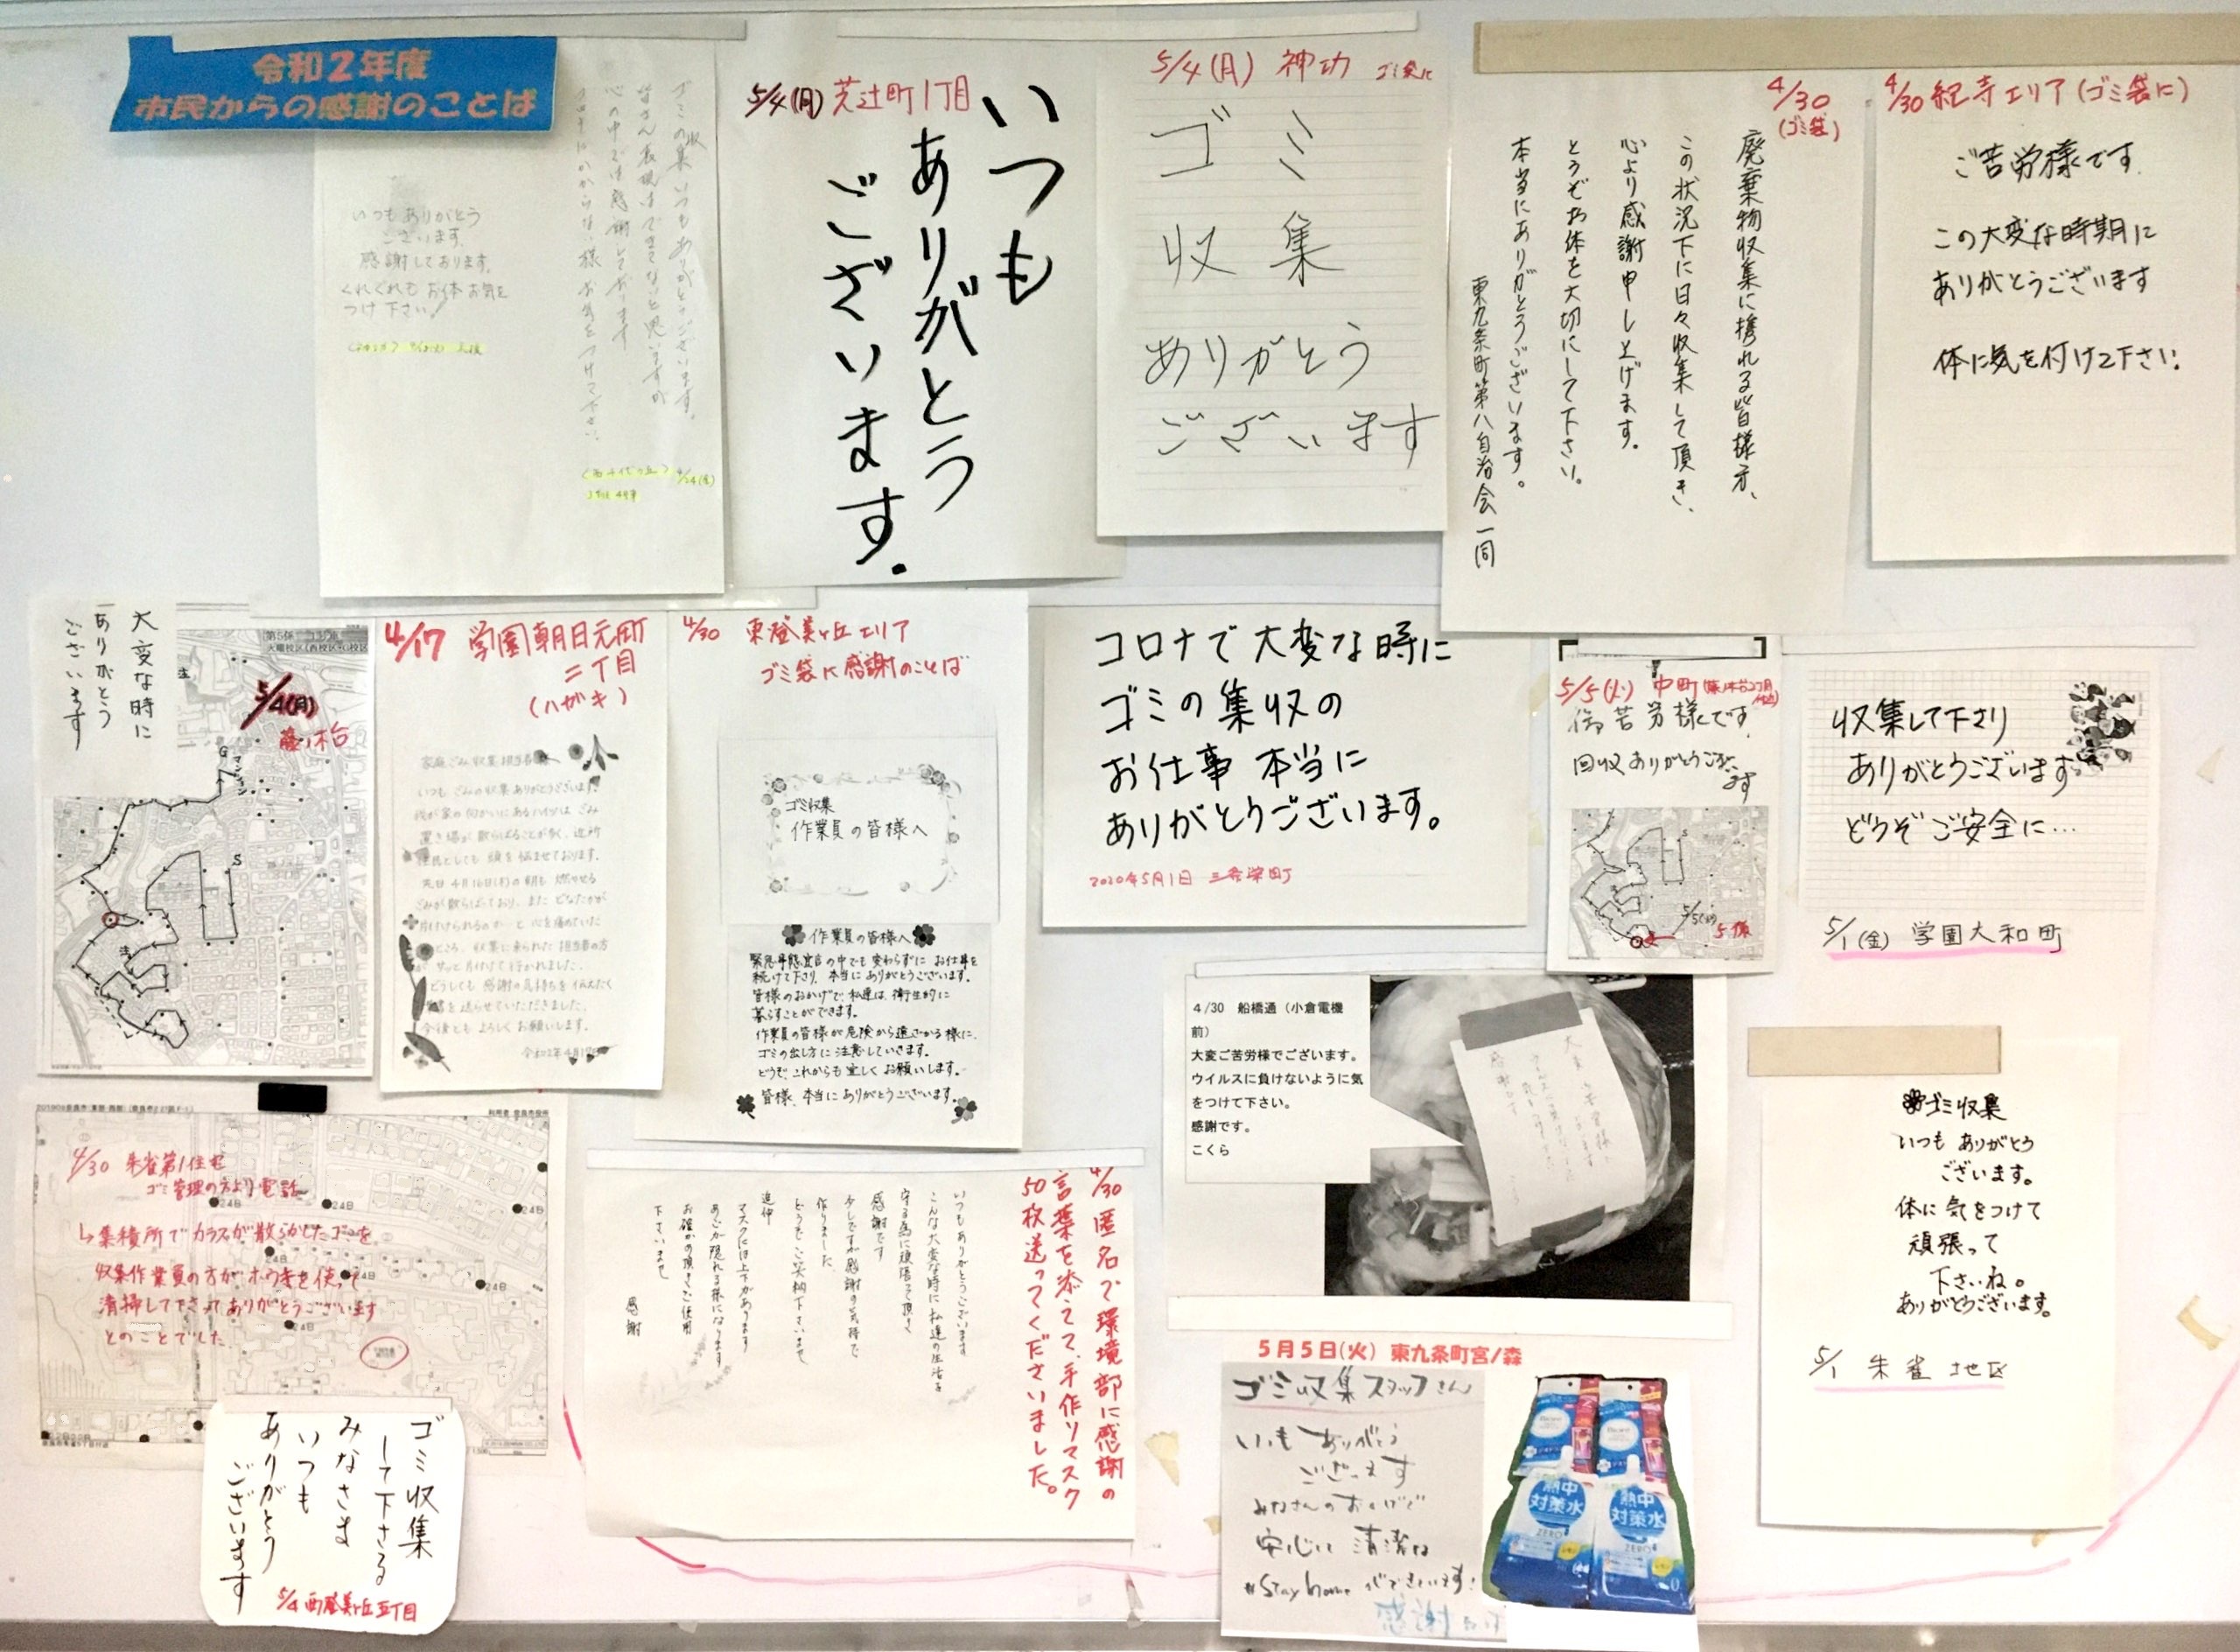 令和2年度
市民からの感謝のことば
ゴミの収集 いつもありがとうございます。
皆さん表現はできてないと思いますが
心の中では感謝しております
いつもありがとう
ございます。
感謝しております。
くれぐれもお体お気を
つけ下さい!
5/4(月) 芝辻町1丁目
いつも
ありがとう
ございます.
5/4(月) 神功 ゴミ袋に
ゴミ
収集
ありがとう
ございます
4/30
(ゴミ袋)
廃棄物収集に携れる皆様方、
この状況下に日々収集して頂き、
心より感謝申し上げます。
どうぞお体を大切にして下さい。
本当にありがとうございます。
東九条町第八自治会一同
4/30 紀寺エリア(ゴミ袋に)
ご苦労様です.
この大変な時期に
ありがとうございます
体に気を付けて下さい.
大変な時に
ありがとう
ございます
5/4(月)
藤ノ木台
4/17 学園朝日元町
二丁目
(ハガキ)
いつも ごみの収集ありがとうございます。
我が家の向かいにあるハイツは ごみ
置き場が散らばることが多く、近所
住民としても 頭を悩ませております。
先日 4月16日(木)の朝も 燃やせる
ごみが散らばっており、またどなたかが
片付けられるのか…と 心を痛めていた
ところ、収集に来られた 担当者の方
が サッと片付けて行かれました。
どうしても 感謝の気持ちを 伝えたく
葉書を送らせていただきました。
今後とも よろしく お願いします。
4/30 東登美ヶ丘エリア
ゴミ袋に感謝のことば
ゴミ収集
作業員の皆様へ
作業員の皆様へ
緊急事態宣言の中でも変わらずに お仕事を
続けて下さり、本当にありがとうございます。
皆様のおかげで、私達は、衛生的に
暮らすことができます。
作業員の皆様が危険から遠ざかる様に、
ゴミの出し方に注意していきます。
どうぞ、これからも宜しくお願いします。
皆様、本当にありがとうございます。
コロナで大変な時に
ゴミの集収の
お仕事 本当に
ありがとうございます。
2020年5月1日 三条栄町
5/5(火) 中町
御苦労様です.
回収ありがとうござい
ます
5/5(火)
5係
収集して下さり
ありがとうございます
どうぞ ご安全に…
5/1(金) 学園大和町
4/30 船橋通(小倉電機
前)
大変ご苦労様でございます。
ウイルスに負けないように気
をつけて下さい。
感謝です。
こくら
ゴミ収集
いつも ありがとう
ございます。
体に気をつけて
頑張って
下さいね。
ありがとうございます。
5/1 朱雀 地区
4/30 朱雀第1住宅
ゴミ管理の方より電話
↳集積所でカラスが散らかしたゴミを
収集作業員の方がホウキを使って
清掃して下さってありがとうございます
とのことでした
ゴミ収集
して下さる
みなさま
いつも
ありがとう
ございます
5/4 西登美ヶ丘五丁目
4/30 匿名で環境部に感謝の
言葉を添えて、手作りマスク
50枚送ってくださいました。
いつもありがとうございます
こんな大変な時に私達の生活を
守る為に頑張って頂き
感謝です
少しですが感謝の気持で
作りました
どうぞご笑納下さいませ
追伸
マスクには上下があります
あごが隠れる様になります
お確かめ頂きご使用
下さいませ
感謝
5月5日(火) 東九条町宮ノ森
ゴミ収集スタッフさん
いつも ありがとう
ございます
みなさんのおかげで
安心して 清潔な
#Stay home ができています!
熱中
対策水
ZERO
熱中
対策水
ZERO